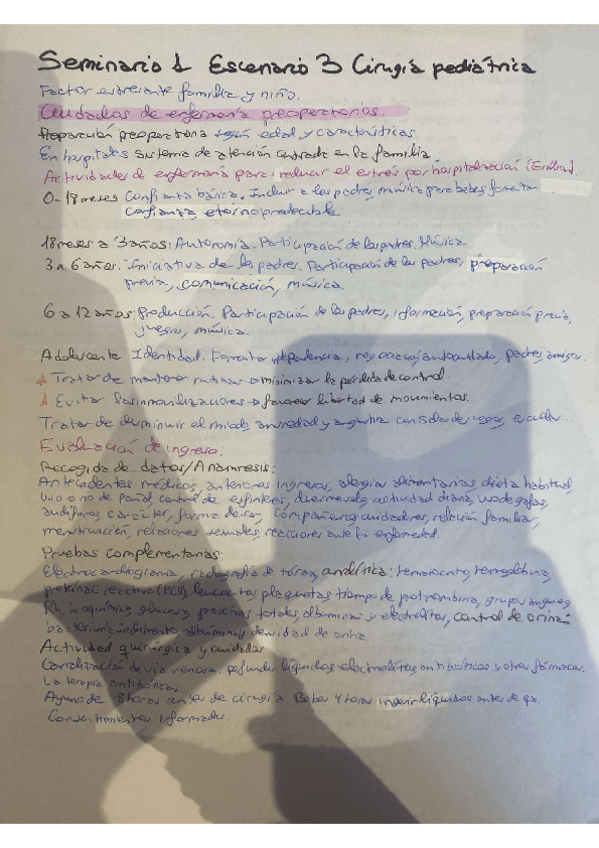 Seminario 1 Escenario 3 Cirugía pediátrica
Factor estresante familia y niño.
Cuidados de enfermería preoperatorios.
Preparación preoperatoria según edad y características.
En hospitales sistema de atención centrada en la familia.
Actividades de enfermería para reducir el estrés por hospitalización (Erikson)
0-18 meses Confianza básica. Incluir a los padres, música para bebés, fomentar
confianza, eterno predecible
18 meses a 3 años: Autonomía. Participación de los padres. Música
3 a 6 años: Iniciativa de los padres. Participación de los padres, preparación
previa, comunicación, música.
6 a 12 años: Producción. Participación de los padres, información, preparación previa,
juegos, música.
Adolescente Identidad. Fomentar independencia, autocuidado, padres, amigos.
Tratar de mantener rutinas → minimizar la pérdida de control.
Evitar las inmovilizaciones → favorecer libertad de movimientos.
Tratar de disminuir el miedo, ansiedad y angustia con sala de juegos, escuela...
Evaluación de ingreso:
Recogida de datos/Anamnesis:
Antecedentes médicos, anteriores ingresos, alergias alimentarias, dieta habitual,
uso o no de pañal, control de esfínteres, duermevela, actividad diaria, uso de gafas,
audífonos, carácter, forma de ser, compañeros, cuidadores, relación familiar,
menstruación, relaciones sexuales, reacciones ante la enfermedad.
Pruebas complementarias
Electrocardiograma, radiografía de tórax, analítica: hematocrito, hemoglobina,
proteína C reactiva (PCR), leucocitos, plaquetas, tiempo de protrombina, grupo sanguíneo
Rh, bioquímica, glucosa, proteínas totales, albúmina y electrolitos, control de orina:
bacteriuria, sedimento, albúmina, densidad de orina.
Actividad quirúrgica y cuidados
Canalización de vía venosa, perfundir líquidos, electrolitos, antibióticos y otros fármacos.
La terapia antibiótica,
Ayuno de 8 horas antes de cirugía Bebés 4 horas ingerir líquidos antes de qx.
Consentimiento informado.